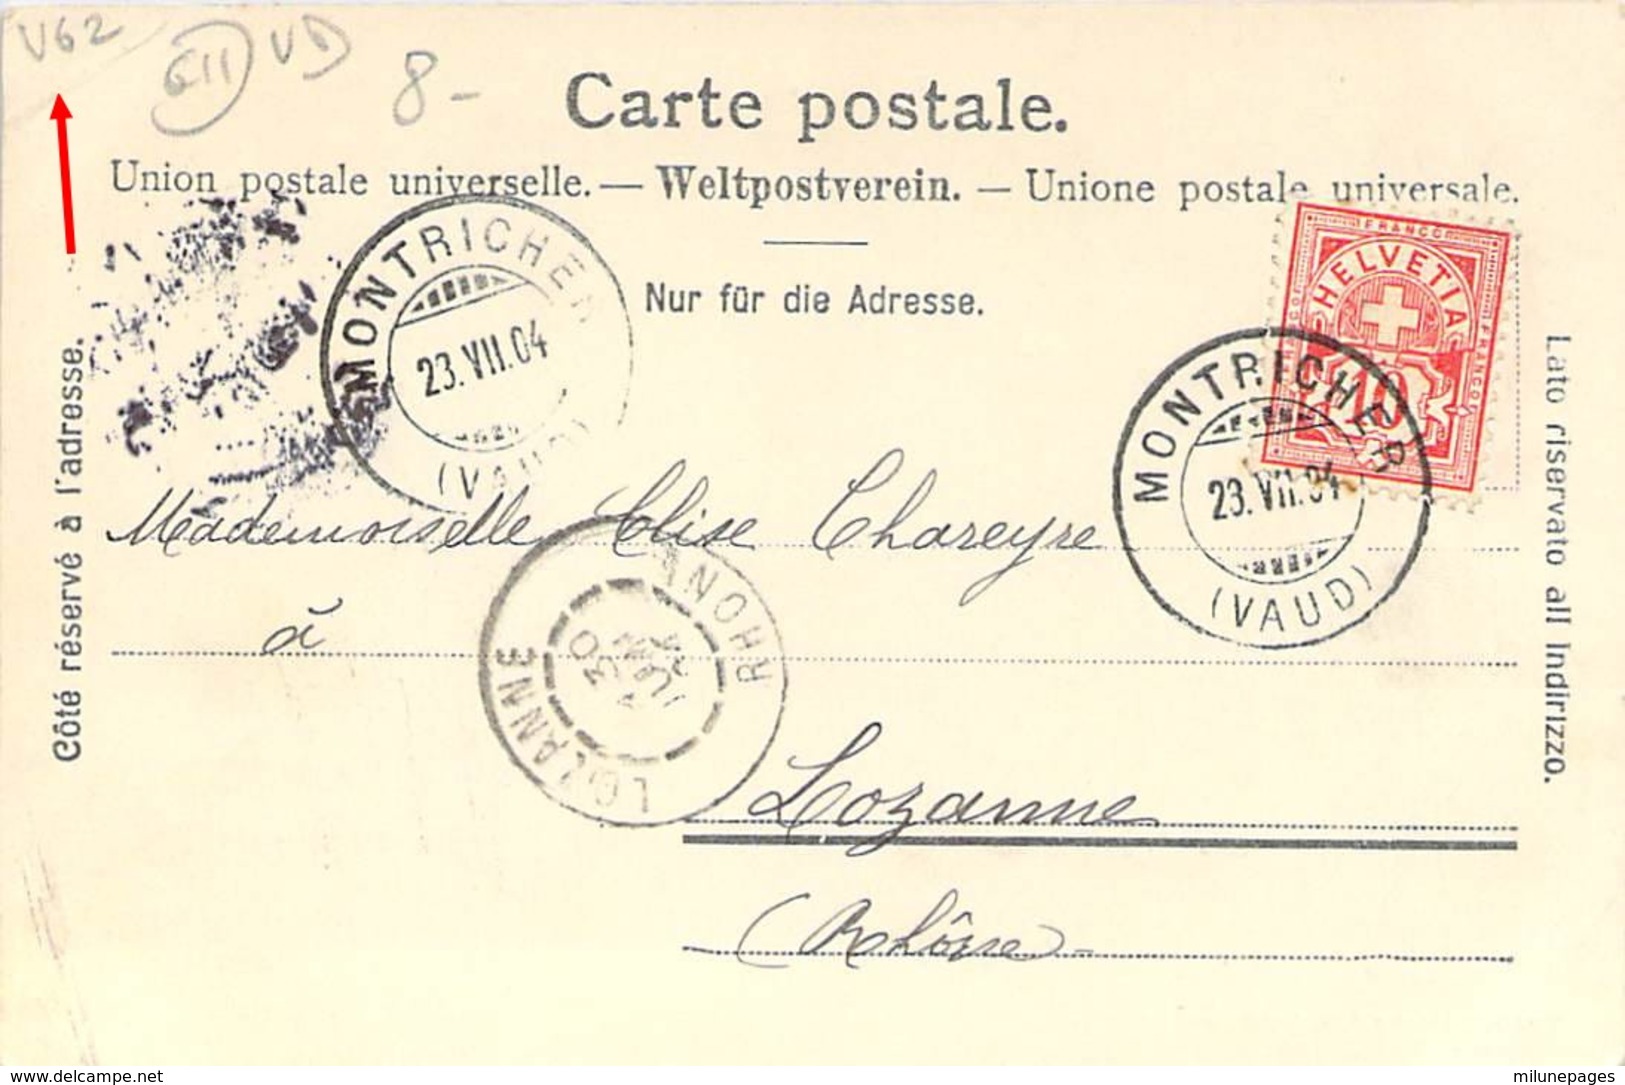 V62
611 VD
8-
Carte postale.
Union postale universelle. — Weltpostverein. — Unione postale universale.
Nur für die Adresse.
Côté réservé à l'adresse.
Lato riservato all Indirizzo.
MONTRICHER
23.VII.04
(VAUD)
FRANCO
HELVETIA
FRANCO
10
MONTRICHER
23.VII.04
(VAUD)
Mademoiselle Elise Chareyre
à
LOZANNE
RHONE
30
04
Lozanne
(Rhône
www.delcampe.net
milunepages